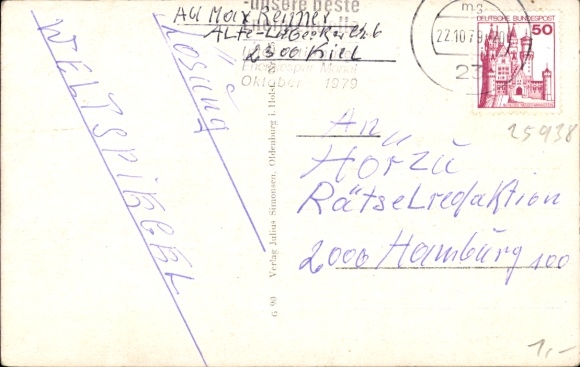 -unsere beste
Ad Max Reimer
2300 Kiel
Oktober 1979
mg
22.10.79
23
DEUTSCHE BUNDESPOST
50
Lösung
WELTSPIEGEL
25938
An
Hörzu
Rätselredaktion
2000 Hamburg 100
G 90 Verlag Julius Simonsen, Oldenburg i. Holst.
1,-